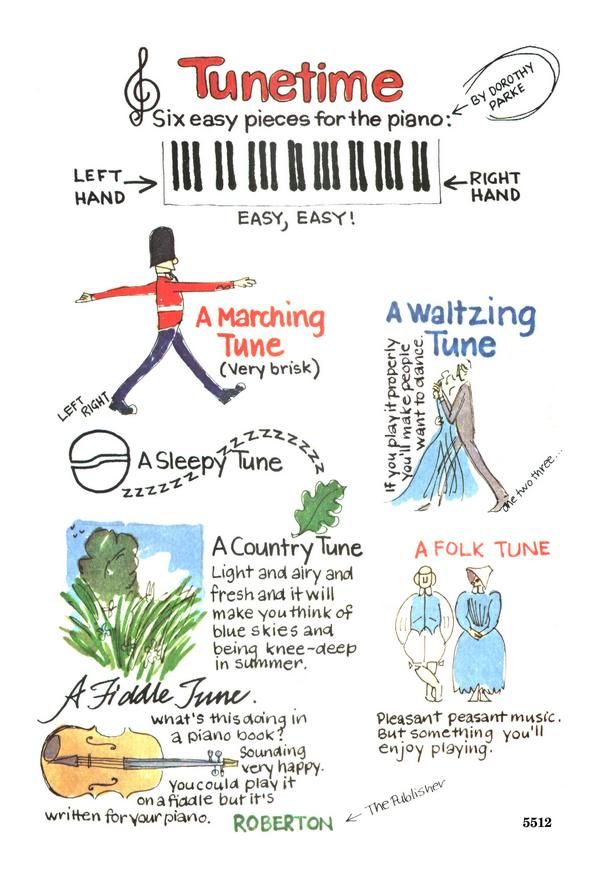 Tunetime
BY DOROTHY
PARKE
Six easy pieces for the piano:
LEFT
HAND
RIGHT
HAND
EASY, EASY!
A Marching
Tune
(Very brisk)
LEFT
RIGHT
A Waltzing
Tune
If you play it properly
you'll make people
want to dance.
one two three...
A Sleepy Tune
zzzzzzzzzzzzzzzzzzzz
A Country Tune
Light and airy and
fresh and it will
make you think of
blue skies and
being knee-deep
in summer.
A FOLK TUNE
Pleasant peasant music.
But something you'll
enjoy playing.
A Fiddle Tune.
what's this doing in
a piano book?
Sounding
very happy.
you could play it
on a fiddle but it's
written for your piano.
ROBERTON
The Publisher
5512